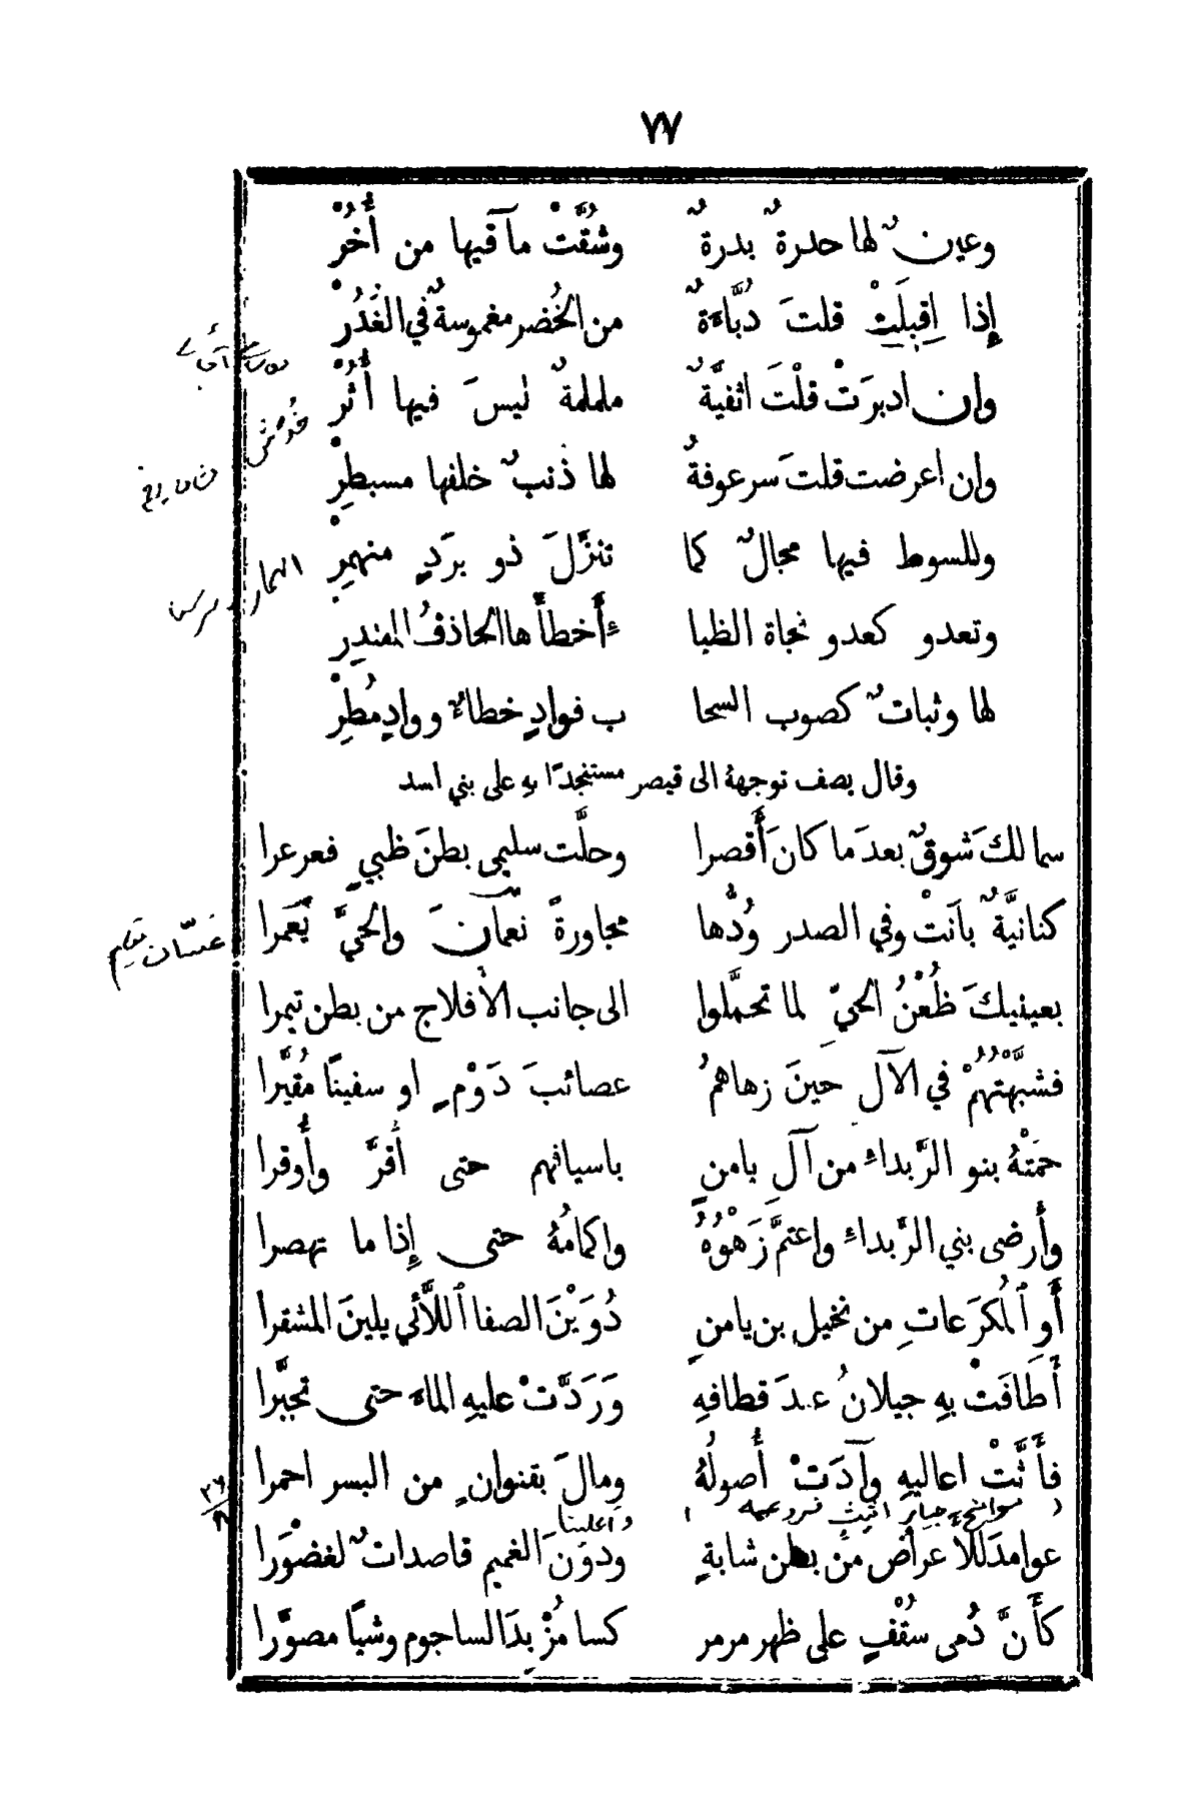 ٧٧
وعينٌ لها حدرةٌ بدرةٌ وشُقَّتْ مآقيها من أُخُرْ
إِذا اقبلَتْ قلتَ دُبَّاءَةٌ من الخُضر مغموسةٌ في الغُدُرْ
وان ادبرَتْ قلْتَ اثفيَّةٌ ململمةٌ ليسَ فيها أُثُرْ
وان اعرضت قلتَ سرعوفةٌ لها ذَنبٌ خلفها مسبطِرْ
وللسوط فيها مجالٌ كما تنزَّلَ ذو برَدٍ منهمِرْ
وتعدو كعدو نجاة الظبا ءِ أَخطأَها الحاذفُ المقتدِرْ
لها وثباتٌ كصوب السحا ب فوادٍ خطاءٌ ووادٍ مُطِرْ
وقال يصف توجههُ الى قيصر مستنجدًا بهِ على بني اسد
سما لكَ شوقٌ بعدَ ما كانَ أَقصرا وحلَّت سليمى بطنَ ظبيٍ فعرعرا
كنانيَّةٌ بانَتْ وفي الصدر وُدُّها مجاورةً نعمانَ والحيَّ يَعمَرا
بعينيكَ ظُعْنُ الحيّ لما تحمَّلوا الى جانب الأفلاج من بطن تيمرا
فشبَّهْتُهُمْ في الآل حينَ زهاهمُ عصائبَ دَوْمٍ او سفينًا مقيَّرا
حمَتْهُ بنو الرَّبداءِ من آل يامنٍ باسيافهم حتى أُقرَّ وأُوقرا
وأَرضى بني الرَّبداءِ واعتمَّ زَهْوُهُ واكمامُهُ حتى إِذا ما تهصرا
أَو ٱلمُكرَعاتِ من نخيل بن يامنٍ دُوَيْنَ الصفا ٱللَّائي يلينَ المشقرا
أَطَافَتْ بهِ جيلانُ عندَ قطافهِ وَرَدَّتْ عليهِ الماءَ حتى تجبَّرا
فأَثَّتْ اعاليهِ وآدَتْ أُصولُهُ ومالَ بقنوانٍ من البسر احمرا
عوامدَ للأعراض من بطن شابةٍ ودونَ الغميم قاصداتٌ لغضوَرا
كأَنَّ دُمى سُقْفٍ على ظهر مرمر كسا مُزْبدَ الساجوم وشيًا مصوَّرا